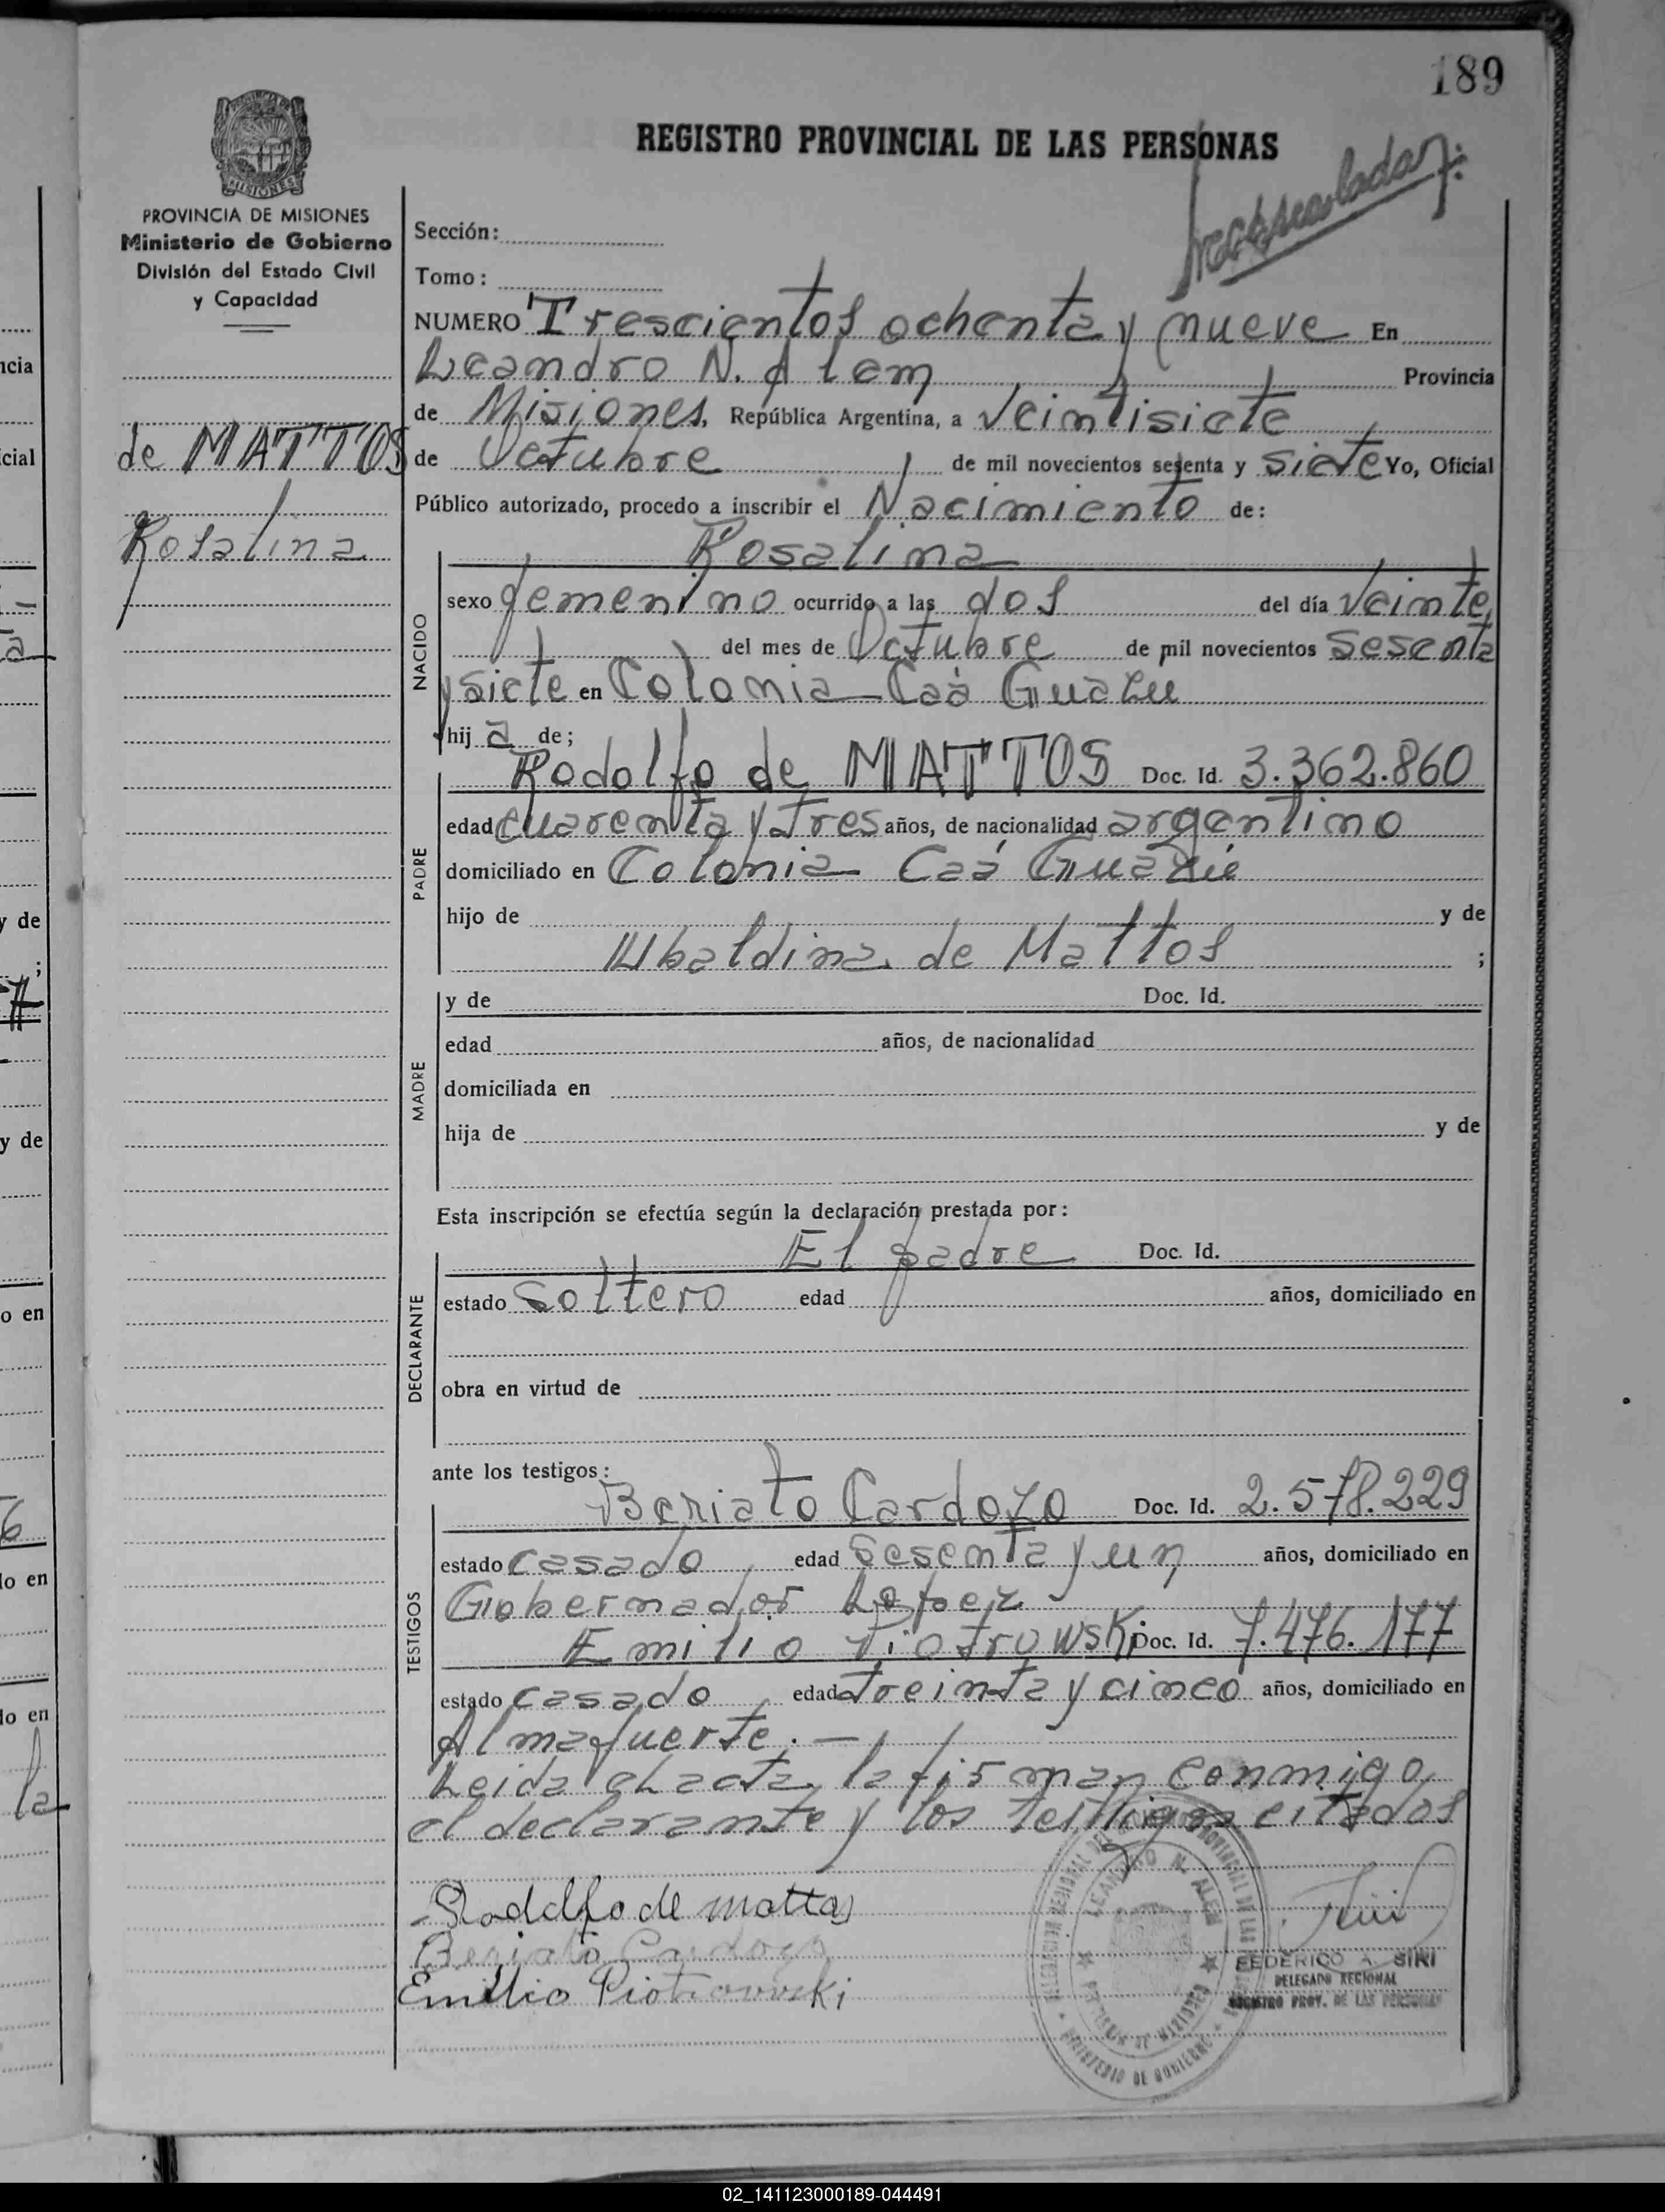 189
REGISTRO PROVINCIAL DE LAS PERSONAS
MISIONES
PROVINCIA DE MISIONES
Ministerio de Gobierno
División del Estado Civil
y Capacidad
de MATTOS
Rosalina
Sección:
Tomo:
NUMERO Trescientos ochenta y nueve En
Leandro N. Alem Provincia
de Misiones, República Argentina, a Veintisiete
de Octubre de mil novecientos sesenta y siete Yo, Oficial
Público autorizado, procedo a inscribir el Nacimiento de:
Rosalina
NACIDO
sexo femenino ocurrido a las dos del día Veinte
del mes de Octubre de mil novecientos sesenta
y siete en Colonia Caá Guazu
hija de;
PADRE
Rodolfo de MATTOS Doc. Id. 3.362.860
edad cuarenta y tres años, de nacionalidad argentino
domiciliado en Colonia Caá Guazú
hijo de y de
Ubaldina de Mattos ;
MADRE
y de Doc. Id.
edad años, de nacionalidad
domiciliada en
hija de y de
Esta inscripción se efectúa según la declaración prestada por:
DECLARANTE
El padre Doc. Id.
estado Soltero edad años, domiciliado en
obra en virtud de
ante los testigos:
TESTIGOS
Beriato Cardozo Doc. Id. 2.578.229
estado casado edad Sesenta y un años, domiciliado en
Gobernador Lopez
Emilio Piotrowski Doc. Id. 7.476.177
estado casado edad treinta y cinco años, domiciliado en
Almafuerte.—
Leida el acta, la firman conmigo,
el declarante y los testigos citados
Rodolfo de mattos
Beriato Cardozo
Emilio Piotrowski
LEANDRO N. ALEM
MINISTERIO DE GOBIERNO
FEDERICO A. SIRI
DELEGADO REGIONAL
REGISTRO PROV. DE LAS PERSONAS
02_141123000189-044491